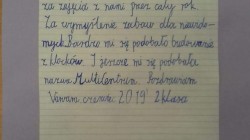 za zajęcia z nami przez cały rok.
Za wymyślenie zabaw dla niewido-
mych. Bardzo mi się podobało budowanie
z klocków. I jeszcze mi się podobała
nasza Multilandia. Pozdrawiam
czerwiec 2019 2 klasa